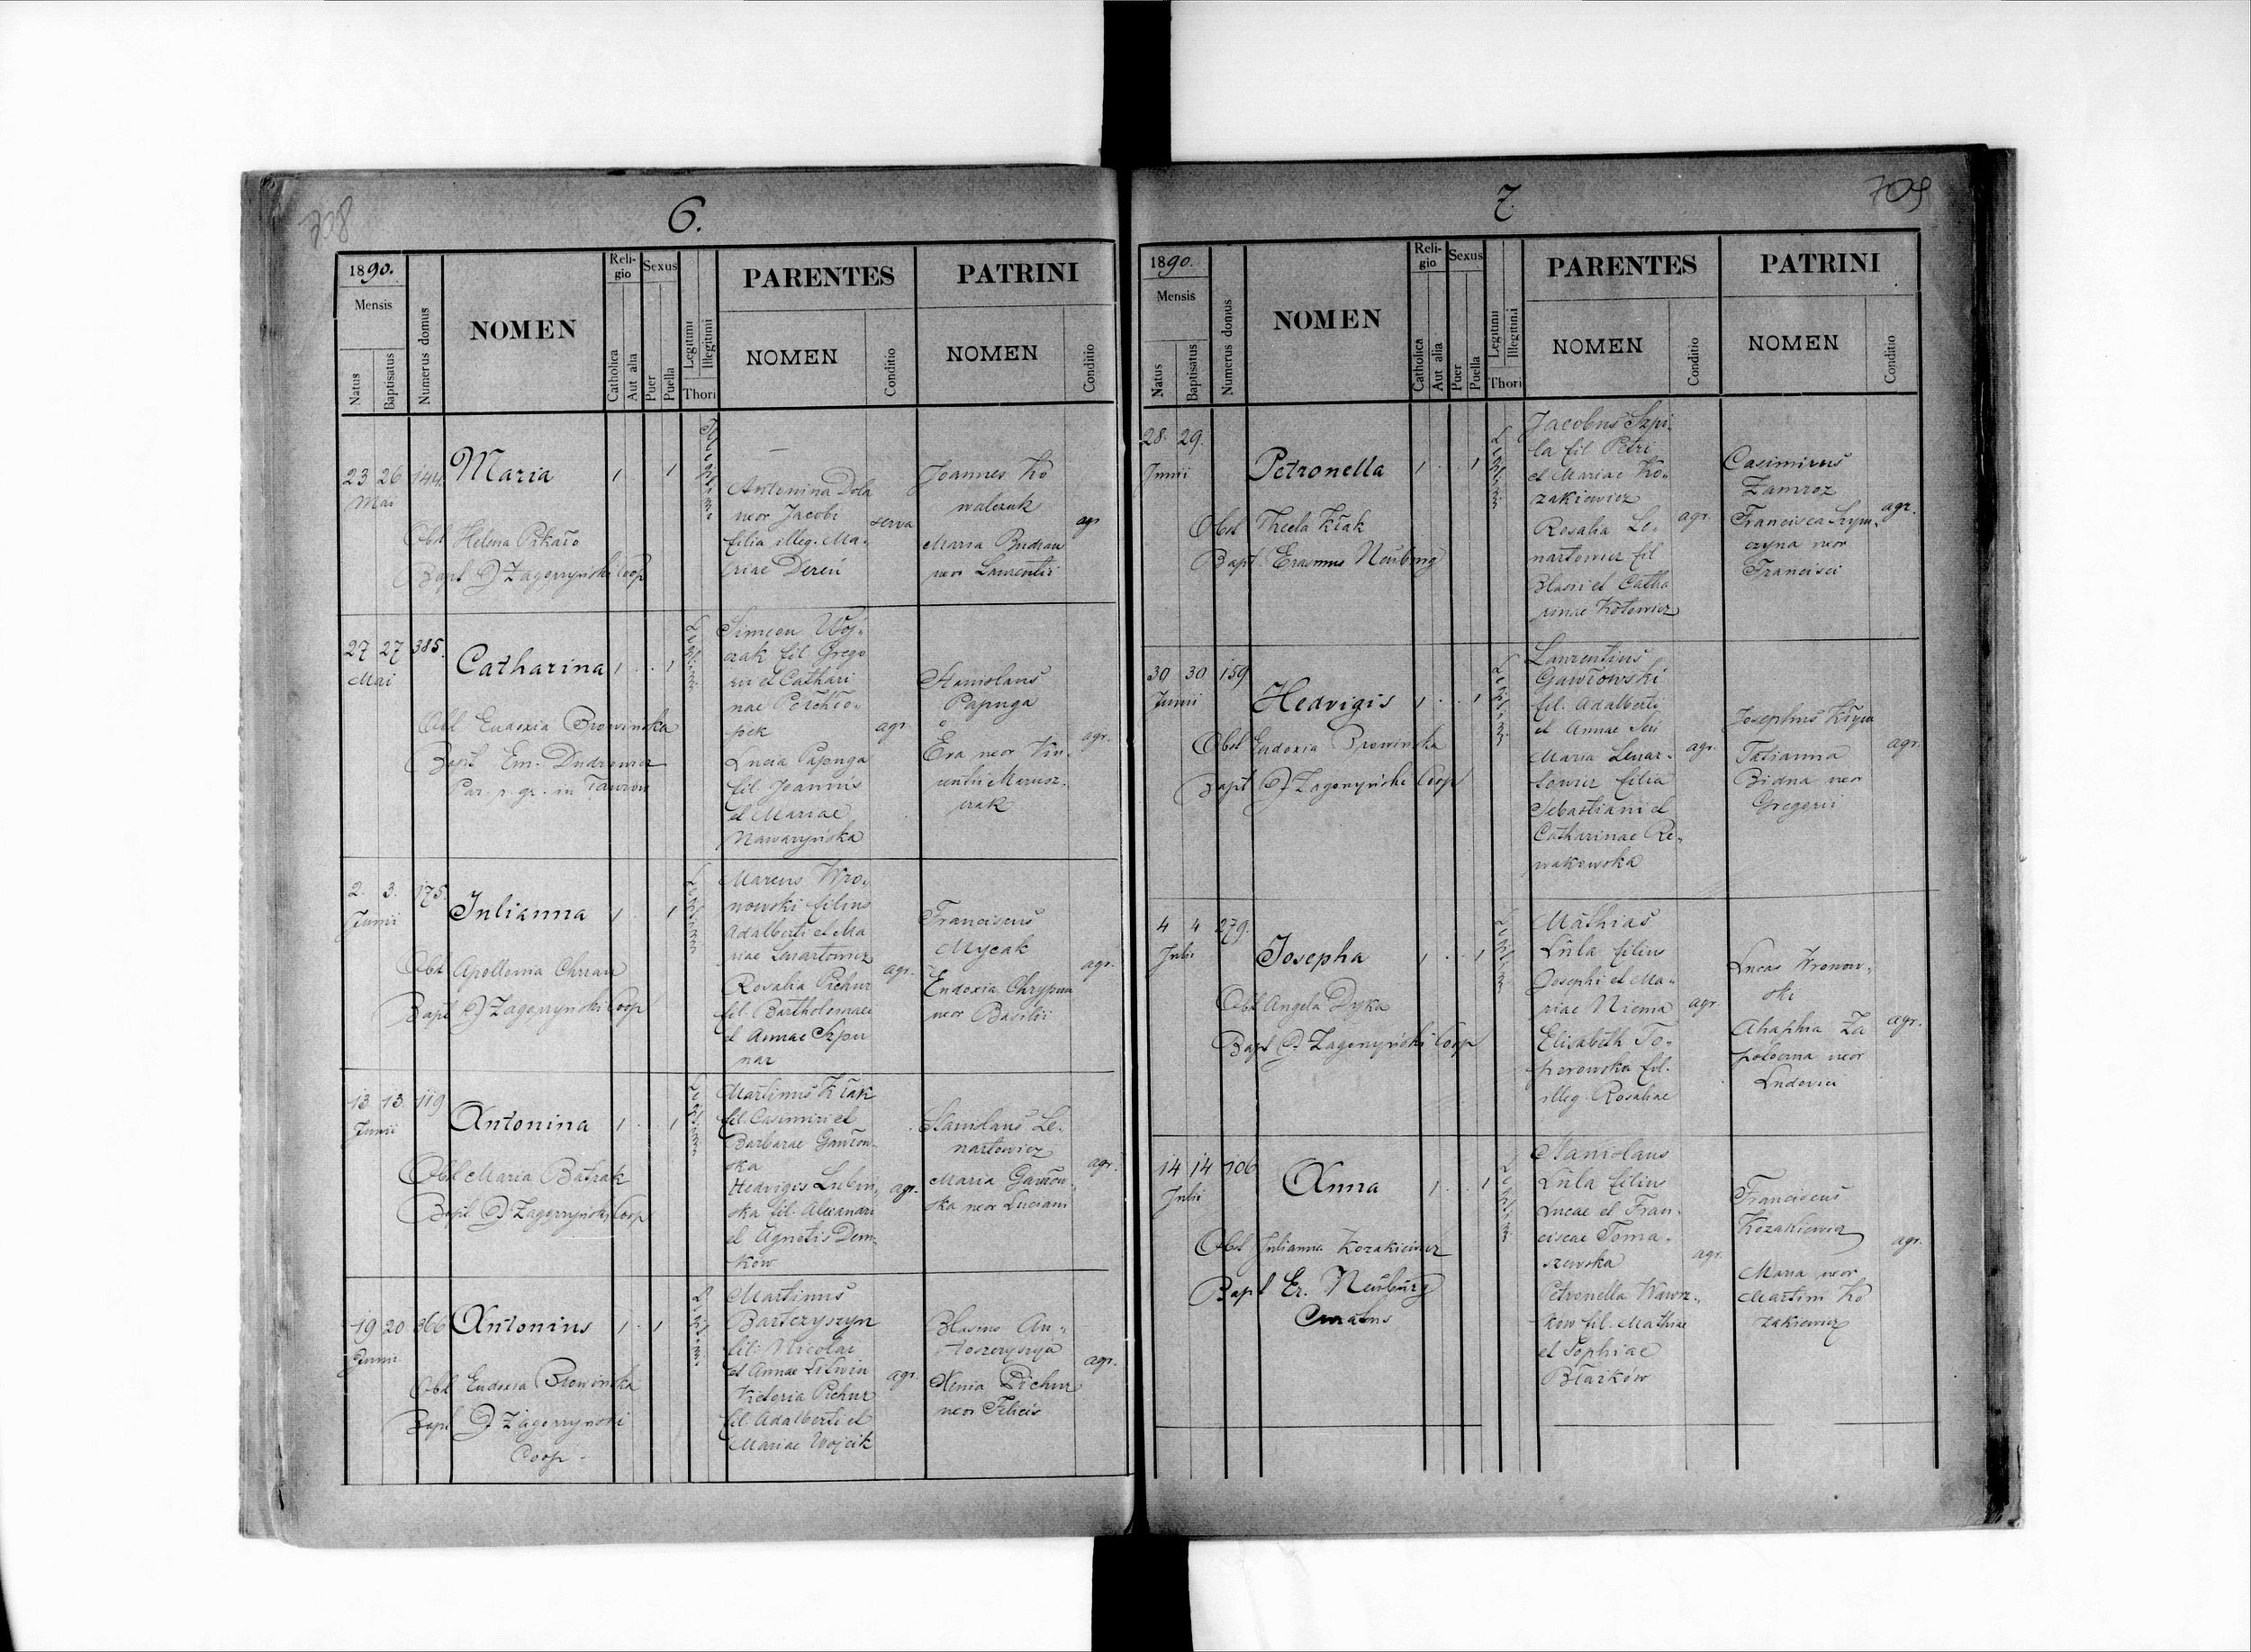 708
6.
1890.
Mensis
Natus
Baptisatus
Numerus domus
NOMEN
Reli-
gio
Catholica
Aut alia
Sexus
Puer
Puella
Legitimi
Illegitimi
Thori
PARENTES
NOMEN
Conditio
PATRINI
NOMEN
Conditio
23 26 144
Mai
Maria
Obst Helena Pikało
Bapt Zagorzyński Coop
Antonina Dola
neor Jacobi
filia illeg. Ma-
riae Dereń
serva
Joannes Ko
walczuk
Maria Budzan
neor Laurentii
agr
27 27 385.
Mai
Catharina
Obst Eudoxia Browinska
Bapt Em. Dudrowicz
Par. r. gr. in
Simeon Woj-
czak fil Grego
rii et Cathari
nae
pek
Lucia Papuga
fil. Joannis
et Mariae
Nawaryńska
agr
Stanislaus
Papuga
Eva neor Vin-
centii Marusz-
czak
agr.
2. 3. 175.
Junii
Julianna
Obst Apollonia
Bapt Zagorzyński Coop
Marcus Wro-
nowski filius
Adalberti et Ma
riae Lenartowicz
Rosalia Pichur
fil. Bartholomaei
et Annae Szpu
nar
agr.
Franciscus
Mycak
Eudoxia Chrypna
neor Basilii
agr.
13 13. 119
Junii
Antonina
Obst Maria Batrak
Bapt Zagorzyński Coop
Martinus Kłak
fil. Casimiri et
Barbarae Gawron-
ska
Hedvigis Lubin-
ska fil. Alexandri
et Agnetis Dem-
ków
agr.
Stanislaus Le-
nartowicz
Maria Gawron-
ska neor Luciani
agr.
19 20 366
Junii
Antonius
Obst Eudoxia Browinska
Bapt Zagorzyński
Coop
Martinus
Bartczyszyn
fil. Nicolai
et Annae Litwin
Victoria Pichur
fil. Adalberti et
Mariae Wojcik
agr.
Blasius An-
toszczyszyn
Xenia Pichur
neor Felicis
agr.
709
7.
1890.
Mensis
Natus
Baptisatus
Numerus domus
NOMEN
Reli-
gio
Catholica
Aut alia
Sexus
Puer
Puella
Legitimi
Illegitimi
Thori
PARENTES
NOMEN
Conditio
PATRINI
NOMEN
Conditio
28. 29.
Junii
Petronella
Obst Thecla Kłak
Bapt Erasmus Neuburg
Jacobus Szpi-
la fil Petri
et Mariae Ko-
zakiewicz
Rosalia Le-
nartowicz fil
Blasii et Catha
rinae Kotowicz
agr.
Casimirus
Zamroz
Francisca Szym-
czyna neor
Francisci
agr.
30 30 159
Junii
Hedvigis
Obst Eudoxia Browinska
Bapt Zagorzyński Coop
Laurentius
Gawronski
fil. Adalberti
et Annae
Maria Lenar-
towicz filia
Sebastiani et
Catharinae Re-
wakowska
agr.
Josephus Kłym
Tatianna
Bidna neor
Gregorii
agr.
4 4 279.
Julii
Josepha
Obst Angela Dyka
Bapt Zagorzyński Coop
Mathias
Lula filius
Josephi et Ma-
riae Niema
Elisabeth To-
porowska fil.
illeg. Rosaliae
agr.
Lucas Wronow-
ski
Ahaphia Za
neor
Ludovici
agr.
14 14 106
Julii
Anna
Obst Julianna Kozakiewicz
Bapt Er. Neuburg
Curatus
Stanislaus
Lula filius
Lucae et Fran-
ciscae Toma-
szewska
Petronella Wawrz-
ków fil. Mathiae
et Sophiae
Błażków
agr.
Franciscus
Kozakiewicz
Maria neor
Martini Ko
zakiewicz
agr.